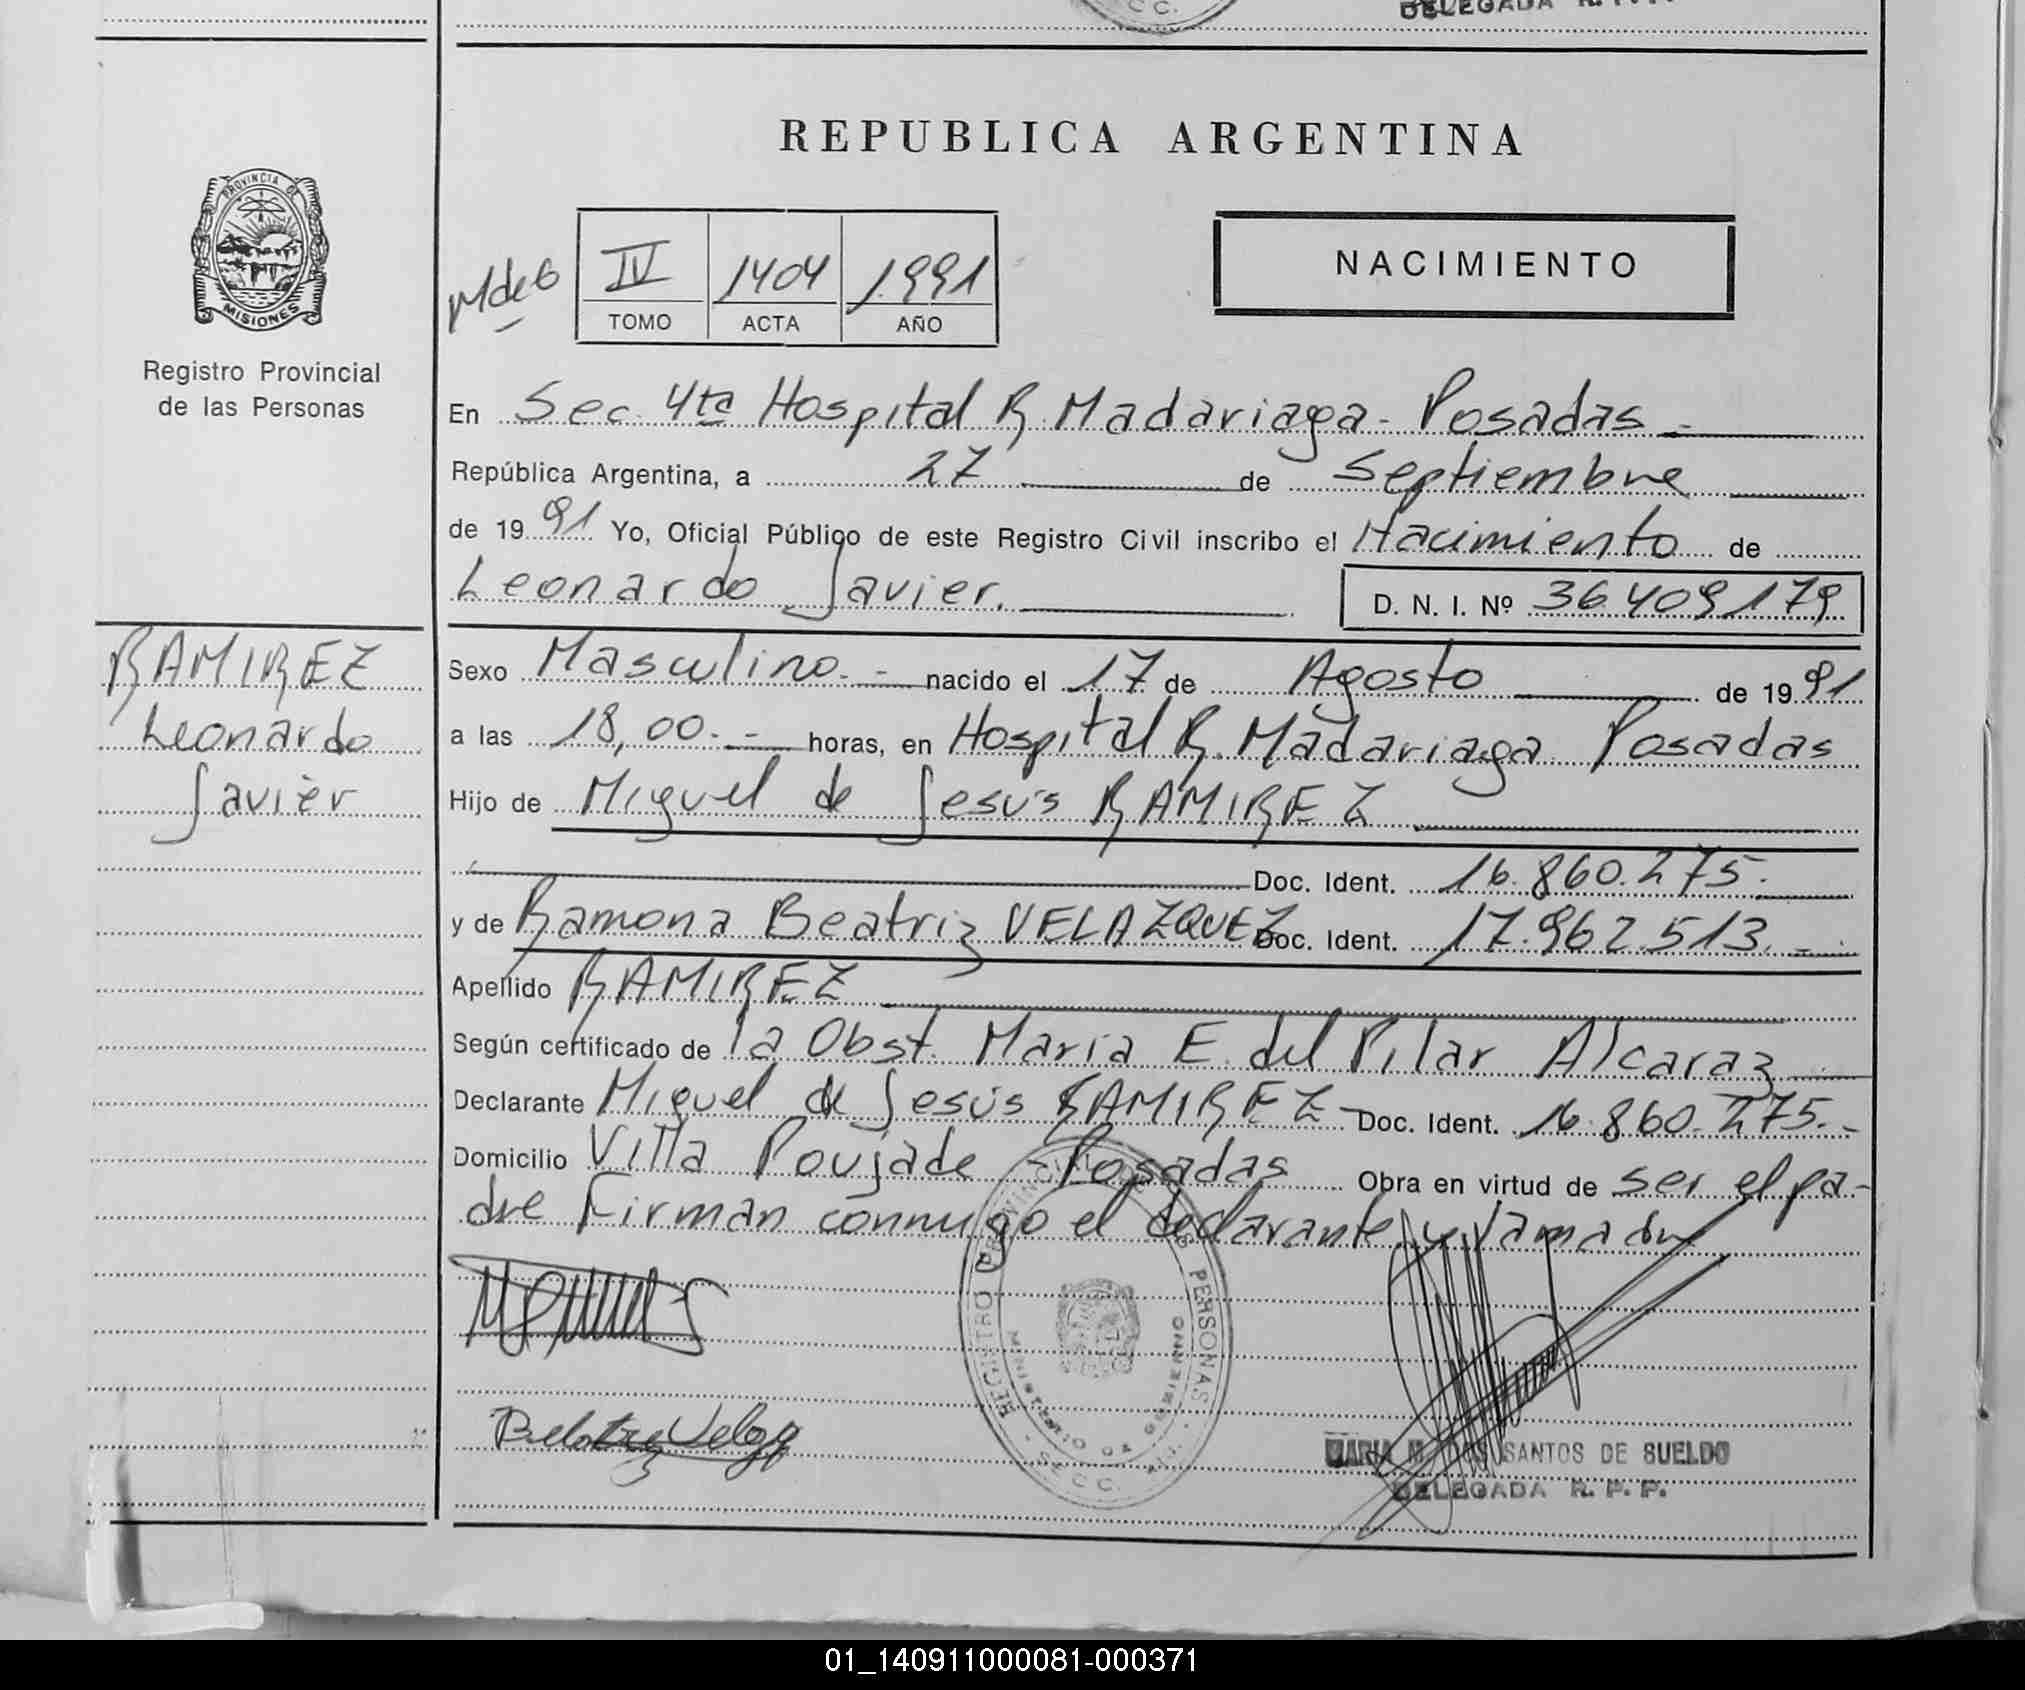 DELEGADA
REPUBLICA ARGENTINA
PROVINCIA DE
MISIONES
Registro Provincial
de las Personas
IV 1404 1991
TOMO ACTA AÑO
NACIMIENTO
En Sec. 4ta Hospital R. Madariaga - Posadas.-
República Argentina, a 27 de Septiembre
de 1991 Yo, Oficial Público de este Registro Civil inscribo el Nacimiento de
Leonardo Javier. D. N. I. Nº 36.409.179
RAMIREZ
Leonardo
Javier
Sexo Masculino.- nacido el 17 de Agosto de 1991
a las 18,00.- horas, en Hospital R. Madariaga Posadas
Hijo de Miguel de Jesús RAMIREZ
Doc. Ident. 16.860.275.-
y de Ramona Beatriz VELAZQUEZ Doc. Ident. 17.962.513.-
Apellido RAMIREZ
Según certificado de la Obst. María E. del Pilar Alcaraz
Declarante Miguel de Jesús RAMIREZ - Doc. Ident. 16.860.275.-
Domicilio Villa Poujade - Posadas Obra en virtud de ser el pa-
dre Firman conmigo el declarante y la madre
REGISTRO PROVINCIAL DE LAS PERSONAS
MINISTERIO DE GOBIERNO
MARIA M. DOS SANTOS DE SUELDO
DELEGADA R. P. P.
01_140911000081-000371